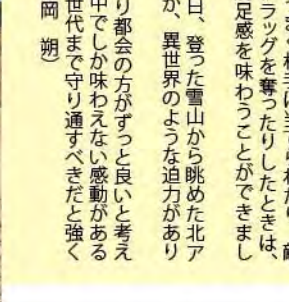 ラッグを奪ったりしたときは、
足感を味わうことができまし
日、登った雪山から眺めた北ア
か、異世界のような迫力があり
り都会の方がずっと良いと考え
中でしか味わえない感動がある
世代まで守り通すべきだと強く
岡 朔)